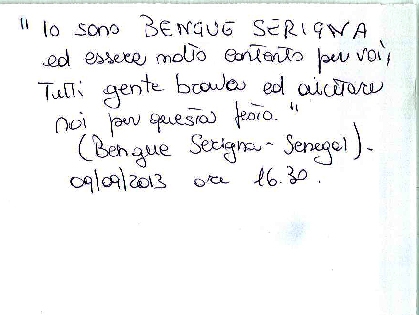 "Io sono BENGUE SERIGNA
ed essere molto contento per voi,
Tutti gente brava ed aiutare
noi per questa festa."
(Bengue Serigna - Senegal).
09/09/2013 ore 16.30.